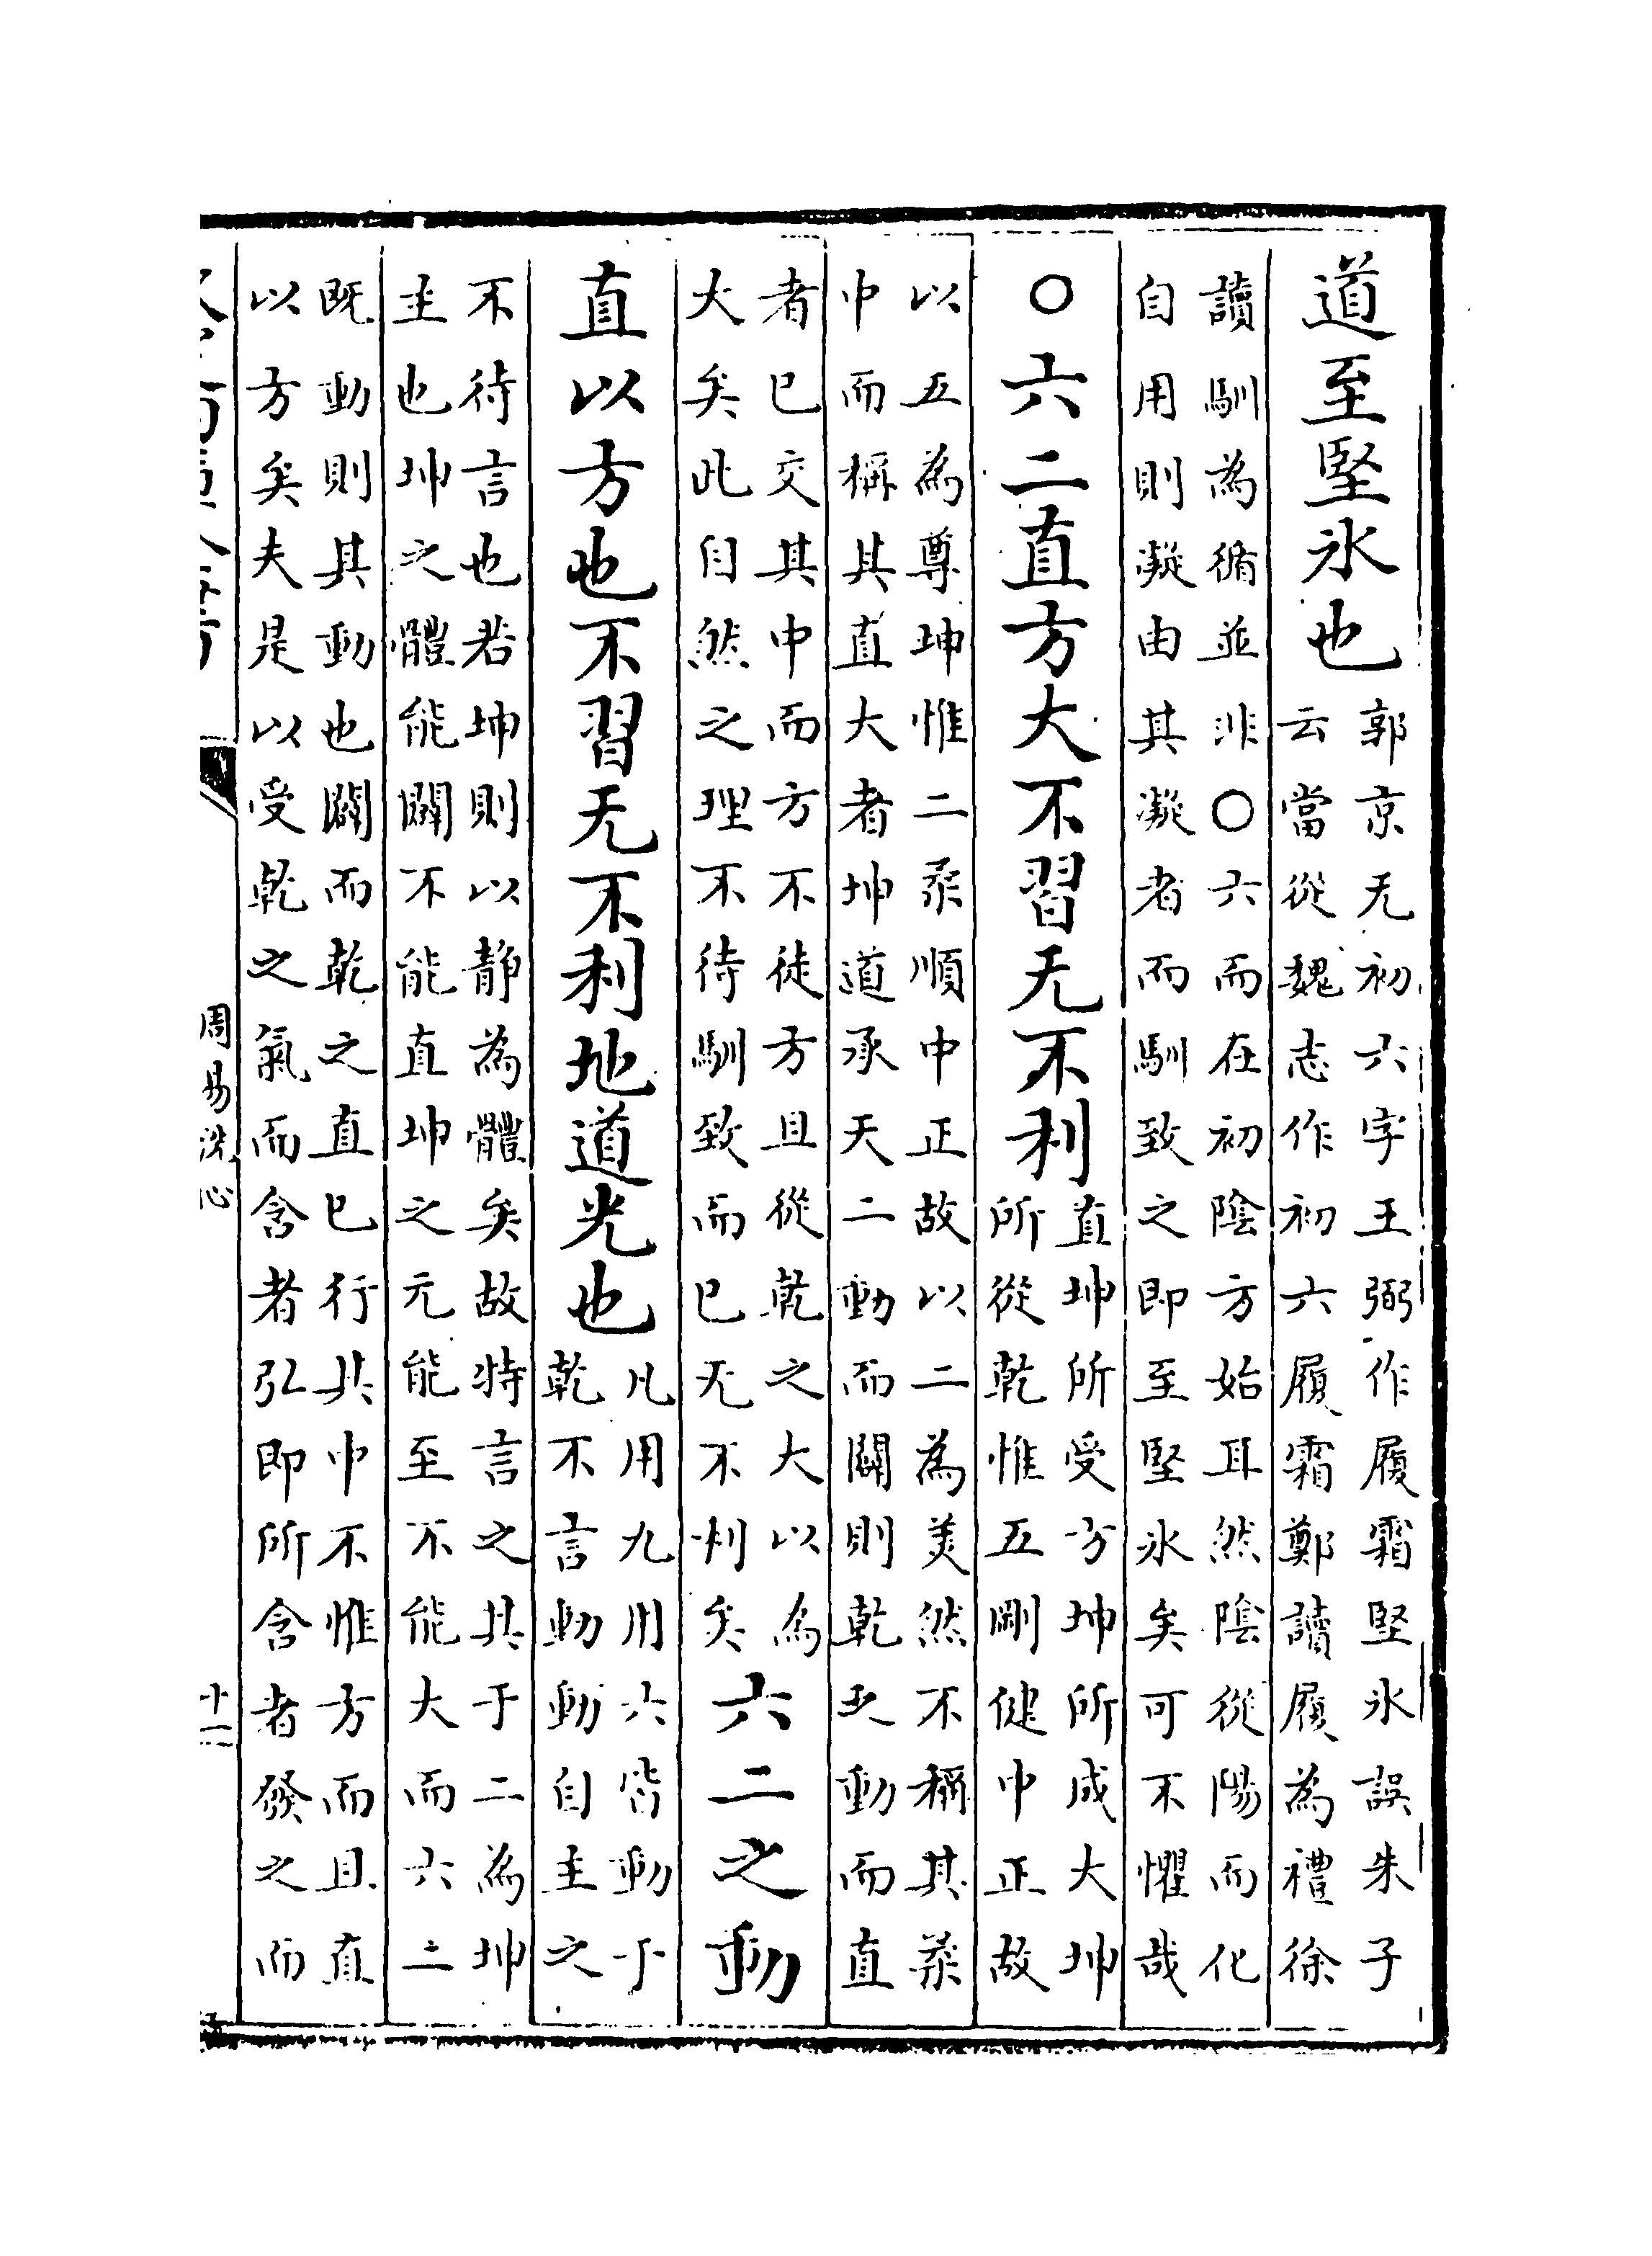 道至堅氷也
郭京无初六字王弼作履霜堅氷誤朱子
云當從魏志作初六履霜鄭讀履為禮徐
讀馴為循並非〇六而在初陰方始耳然陰從陽而化
自用則凝由其凝者而馴致之即至堅氷矣可不懼哉
〇六二直方大不習无不利
直坤所受方坤所成大坤
所從乾惟五剛健中正故
以五為尊坤惟二柔順中正故以二為美然不稱其柔
中而稱其直大者坤道承天二動而闢則乾之動而直
者已交其中而方不徒方且從乾之大以為
大矣此自然之理不待馴致而已无不利矣
六二之動
直以方也不習无不利地道光也
凡用九用六皆動于
乾不言動動自主之
不待言也若坤則以靜為體矣故特言之其于二為坤
主也坤之體能闢不能直坤之元能至不能大而六二
既動則其動也闢而乾之直已行其中不惟方而且直
以方矣夫是以受乾之氣而含者弘即所含者發之而
周易洗心
十一